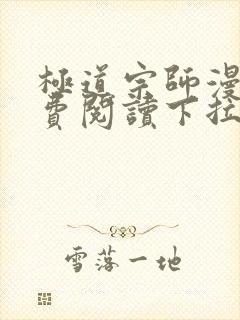 極道宗師漫
費閱讀下拉
雪落一地